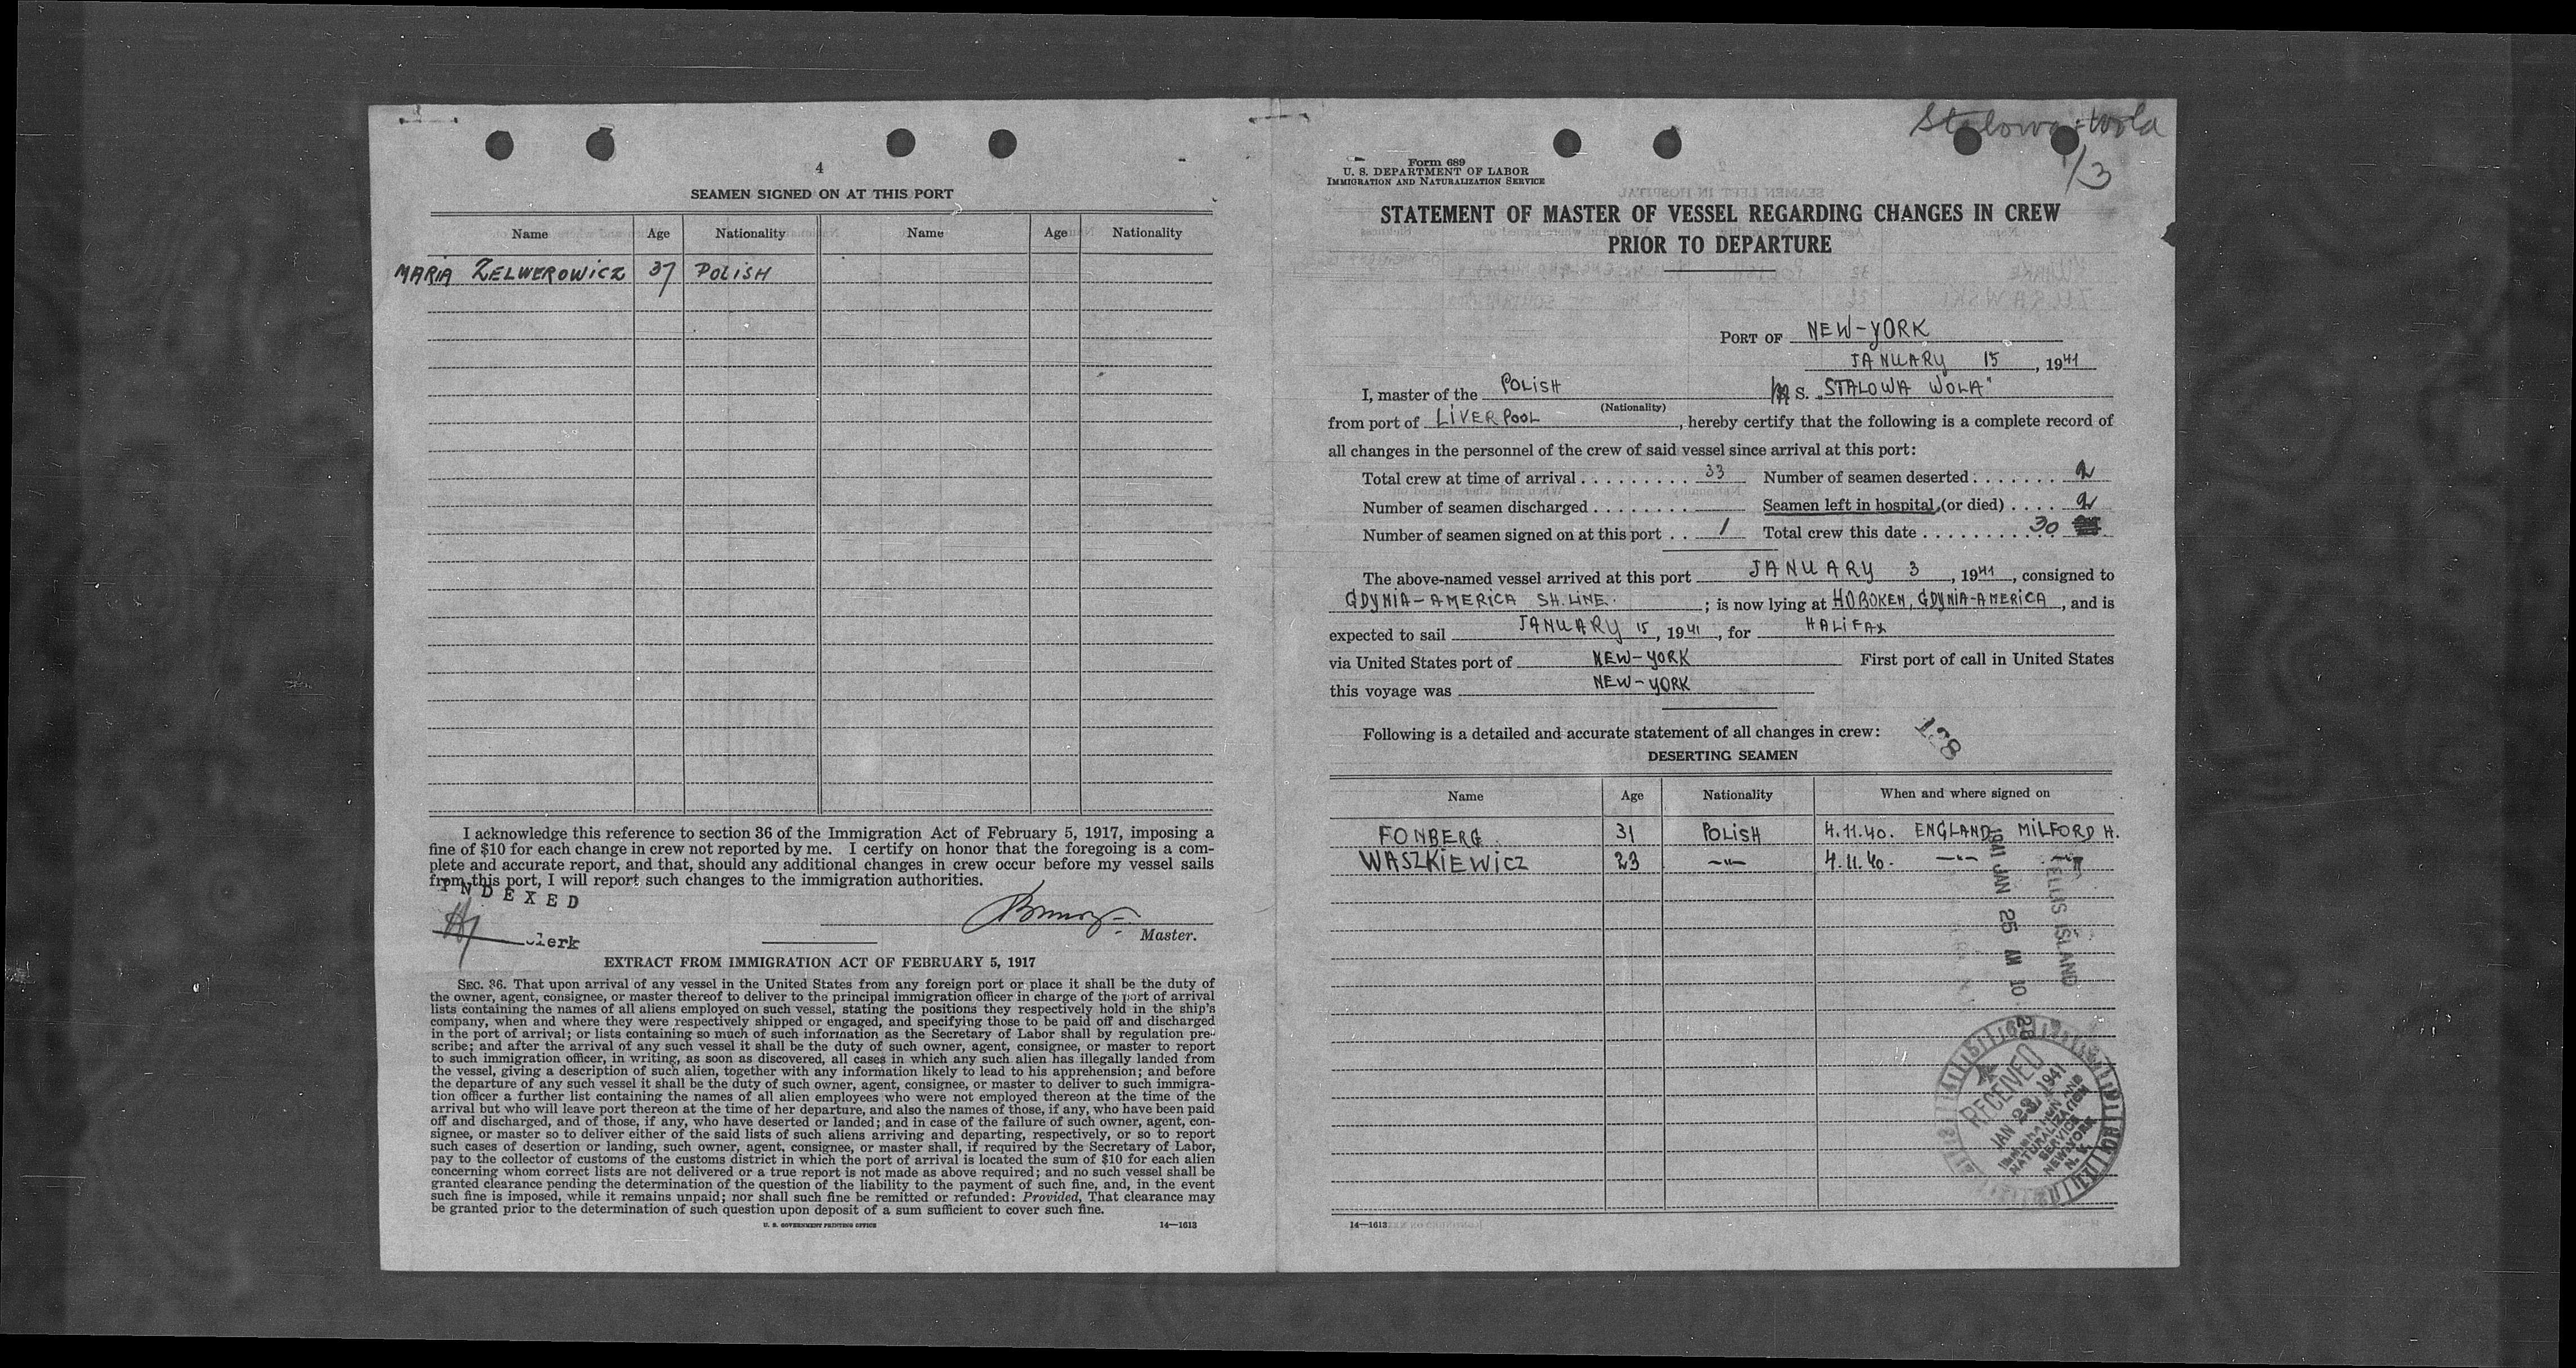 4
SEAMEN SIGNED ON AT THIS PORT
Name Age Nationality Name Age Nationality
MARIA ZELWEROWICZ 37 POLISH
I acknowledge this reference to section 36 of the Immigration Act of February 5, 1917, imposing a
fine of $10 for each change in crew not reported by me. I certify on honor that the foregoing is a com-
plete and accurate report, and that, should any additional changes in crew occur before my vessel sails
from this port, I will report such changes to the immigration authorities.
INDEXED
Clerk
Master.
EXTRACT FROM IMMIGRATION ACT OF FEBRUARY 5, 1917
SEC. 36. That upon arrival of any vessel in the United States from any foreign port or place it shall be the duty of
the owner, agent, consignee, or master thereof to deliver to the principal immigration officer in charge of the port of arrival
lists containing the names of all aliens employed on such vessel, stating the positions they respectively hold in the ship's
company, when and where they were respectively shipped or engaged, and specifying those to be paid off and discharged
in the port of arrival; or lists containing so much of such information as the Secretary of Labor shall by regulation pre-
scribe; and after the arrival of any such vessel it shall be the duty of such owner, agent, consignee, or master to report
to such immigration officer, in writing, as soon as discovered, all cases in which any such alien has illegally landed from
the vessel, giving a description of such alien, together with any information likely to lead to his apprehension; and before
the departure of any such vessel it shall be the duty of such owner, agent, consignee, or master to deliver to such immigra-
tion officer a further list containing the names of all alien employees who were not employed thereon at the time of the
arrival but who will leave port thereon at the time of her departure, and also the names of those, if any, who have been paid
off and discharged, and of those, if any, who have deserted or landed; and in case of the failure of such owner, agent, con-
signee, or master so to deliver either of the said lists of such aliens arriving and departing, respectively, or so to report
such cases of desertion or landing, such owner, agent, consignee, or master shall, if required by the Secretary of Labor,
pay to the collector of customs of the customs district in which the port of arrival is located the sum of $10 for each alien
concerning whom correct lists are not delivered or a true report is not made as above required; and no such vessel shall be
granted clearance pending the determination of the question of the liability to the payment of such fine, and, in the event
such fine is imposed, while it remains unpaid; nor shall such fine be remitted or refunded: Provided, That clearance may
be granted prior to the determination of such question upon deposit of a sum sufficient to cover such fine.
U. S. GOVERNMENT PRINTING OFFICE 14—1613
Stalowa-Wola
1/3
Form 689
U. S. DEPARTMENT OF LABOR
IMMIGRATION AND NATURALIZATION SERVICE
STATEMENT OF MASTER OF VESSEL REGARDING CHANGES IN CREW
PRIOR TO DEPARTURE
PORT OF NEW-YORK
JANUARY 15, 1941
I, master of the POLISH M S. „STALOWA WOLA"
(Nationality)
from port of LIVERPOOL, hereby certify that the following is a complete record of
all changes in the personnel of the crew of said vessel since arrival at this port:
Total crew at time of arrival . . . . . . . . . 33 Number of seamen deserted . . . . . . . 2
Number of seamen discharged . . . . . . . . Seamen left in hospital (or died) . . . . 2
Number of seamen signed on at this port . . 1 Total crew this date . . . . . . . . . . 30
The above-named vessel arrived at this port JANUARY 3, 1941, consigned to
GDYNIA-AMERICA SH. LINE. ; is now lying at HOBOKEN, GDYNIA-AMERICA, and is
expected to sail JANUARY 15, 1941, for HALIFAX
via United States port of NEW-YORK First port of call in United States
this voyage was NEW-YORK
Following is a detailed and accurate statement of all changes in crew:
138
DESERTING SEAMEN
Name Age Nationality When and where signed on
FONBERG. 31 POLISH 4.11.40. ENGLAND MILFORD H.
WASZKIEWICZ 23 —"— 4.11.40. —"— —"—
1941 JAN 25 AM 10 28
ELLIS ISLAND
RECEIVED
JAN 28 1941
IMMIGRATION AND
NATURALIZATION
SERVICE
NEW YORK
N. Y.
14—1613